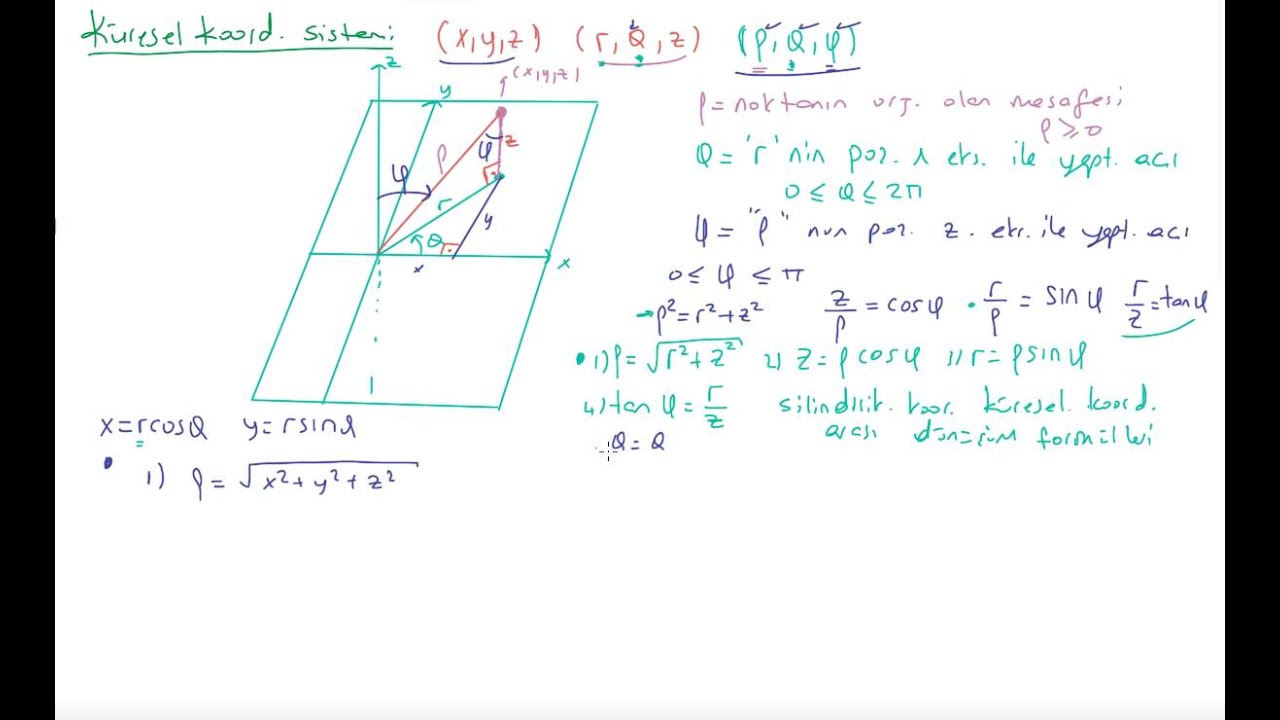 Küresel koord. sistemi (x,y,z) (r,θ,z) (ρ,θ,φ)
z
y
(x,y,z)
φ
ρ
φ
z
r
y
θ
x
x
ρ = noktanın orj. olan mesafesi
ρ ≥ 0
θ = "r" nin poz. x eks. ile yapt. açı
0 ≤ θ ≤ 2π
φ = "ρ" nun poz. z. ek. ile yapt. açı
0 ≤ φ ≤ π
→ρ² = r² + z² z/ρ = cosφ · r/ρ = sinφ r/z = tanφ
• 1) ρ = √(r² + z²) 2) z = ρ cosφ 3) r = ρ sinφ
4) tan φ = r/z silindirik. koor. küresel. koord.
θ = θ arası dönüşüm formülleri
x = rcosθ y = rsinθ
• 1) ρ = √(x² + y² + z²)